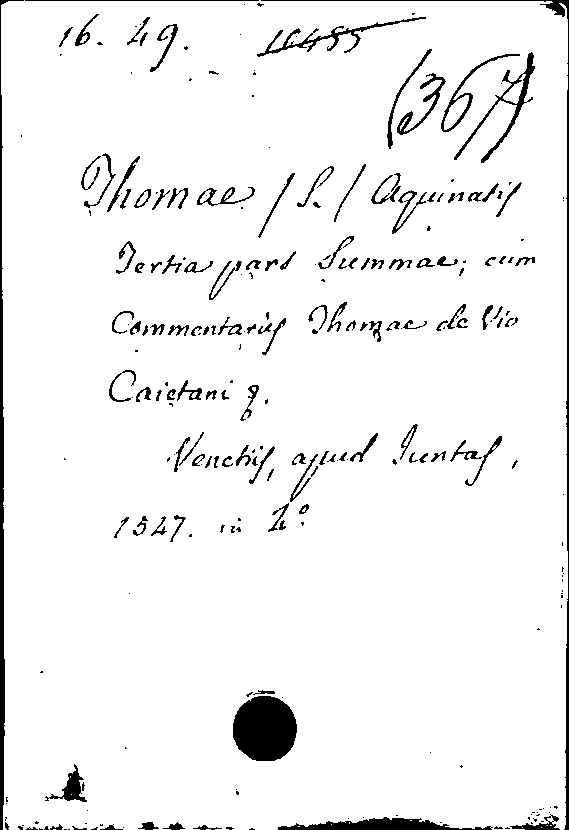 16. 49. 16455
(367)
Thomae /S./ Aquinatis
Tertia pars Summae; cum
Commentariis Thomae de Vio
Caietani &.
Venetiis, apud Iuntas,
1547. in 4º